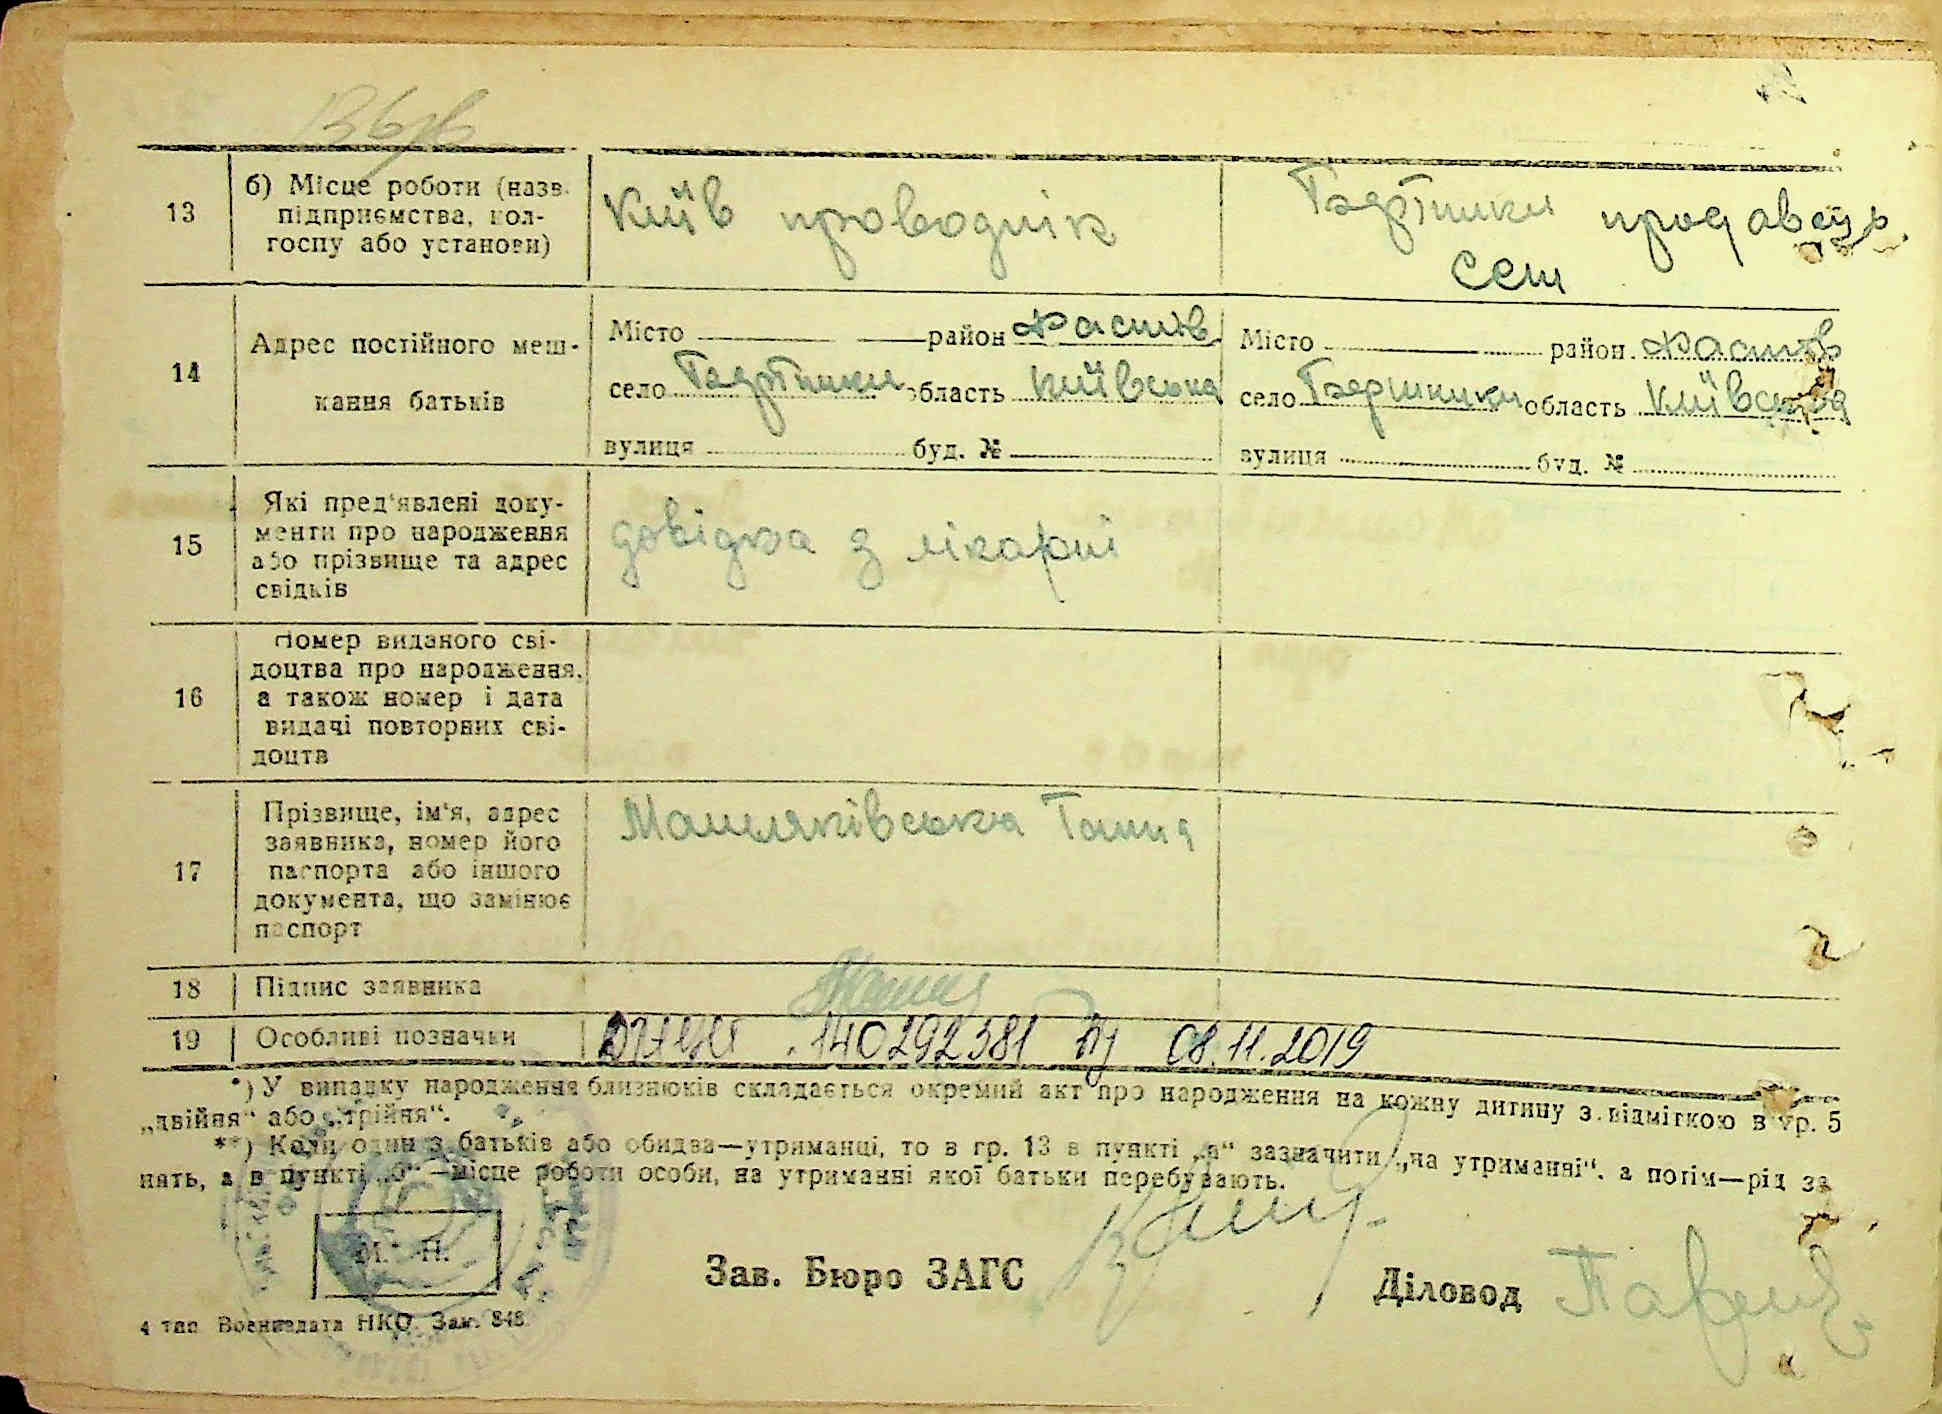 13
б) Місце роботи (назв.
підприємства, кол-
госпу або установи)
Київ проводнік
продавець
сеш
14
Адрес постійного меш-
кання батьків
Місто район Фастів
село область Київська
вулиця буд. №
Місто район Фастів
село область Київська
вулиця буд. №
15
Які пред'явлені доку-
менти про народження
або прізвище та адрес
свідків
довідка з лікарні
16
Номер виданого сві-
доцтва про народження,
а також номер і дата
видачі повторних сві-
доцтв
17
Прізвище, ім'я, адрес
заявника, номер його
паспорта або іншого
документа, що замінює
паспорт
Ганна
18
Підпис заявника
19
Особливі позначки
ДРАЦСГ 140292381 08.11.2019
*) У випадку народження близнюків складається окремий акт про народження на кожну дитину з відміткою в гр. 5
„двійня“ або „трійня“.
**) Коли один з батьків або обидва—утриманці, то в гр. 13 в пункті „а“ зазначити „на утриманні“, а потім—рід за
нять, а в пункті „б“—місце роботи особи, на утриманні якої батьки перебувають.
М. П.
Зав. Бюро ЗАГС
Діловод
4 тип Воениздата НКО Зак. 848.